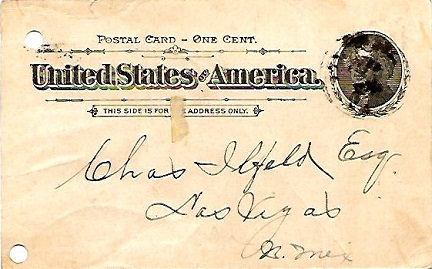 POSTAL CARD – ONE CENT.
United States of America.
THIS SIDE IS FOR ADDRESS ONLY.
Chas Ilfeld Esq.
Las Vegas
N. Mex